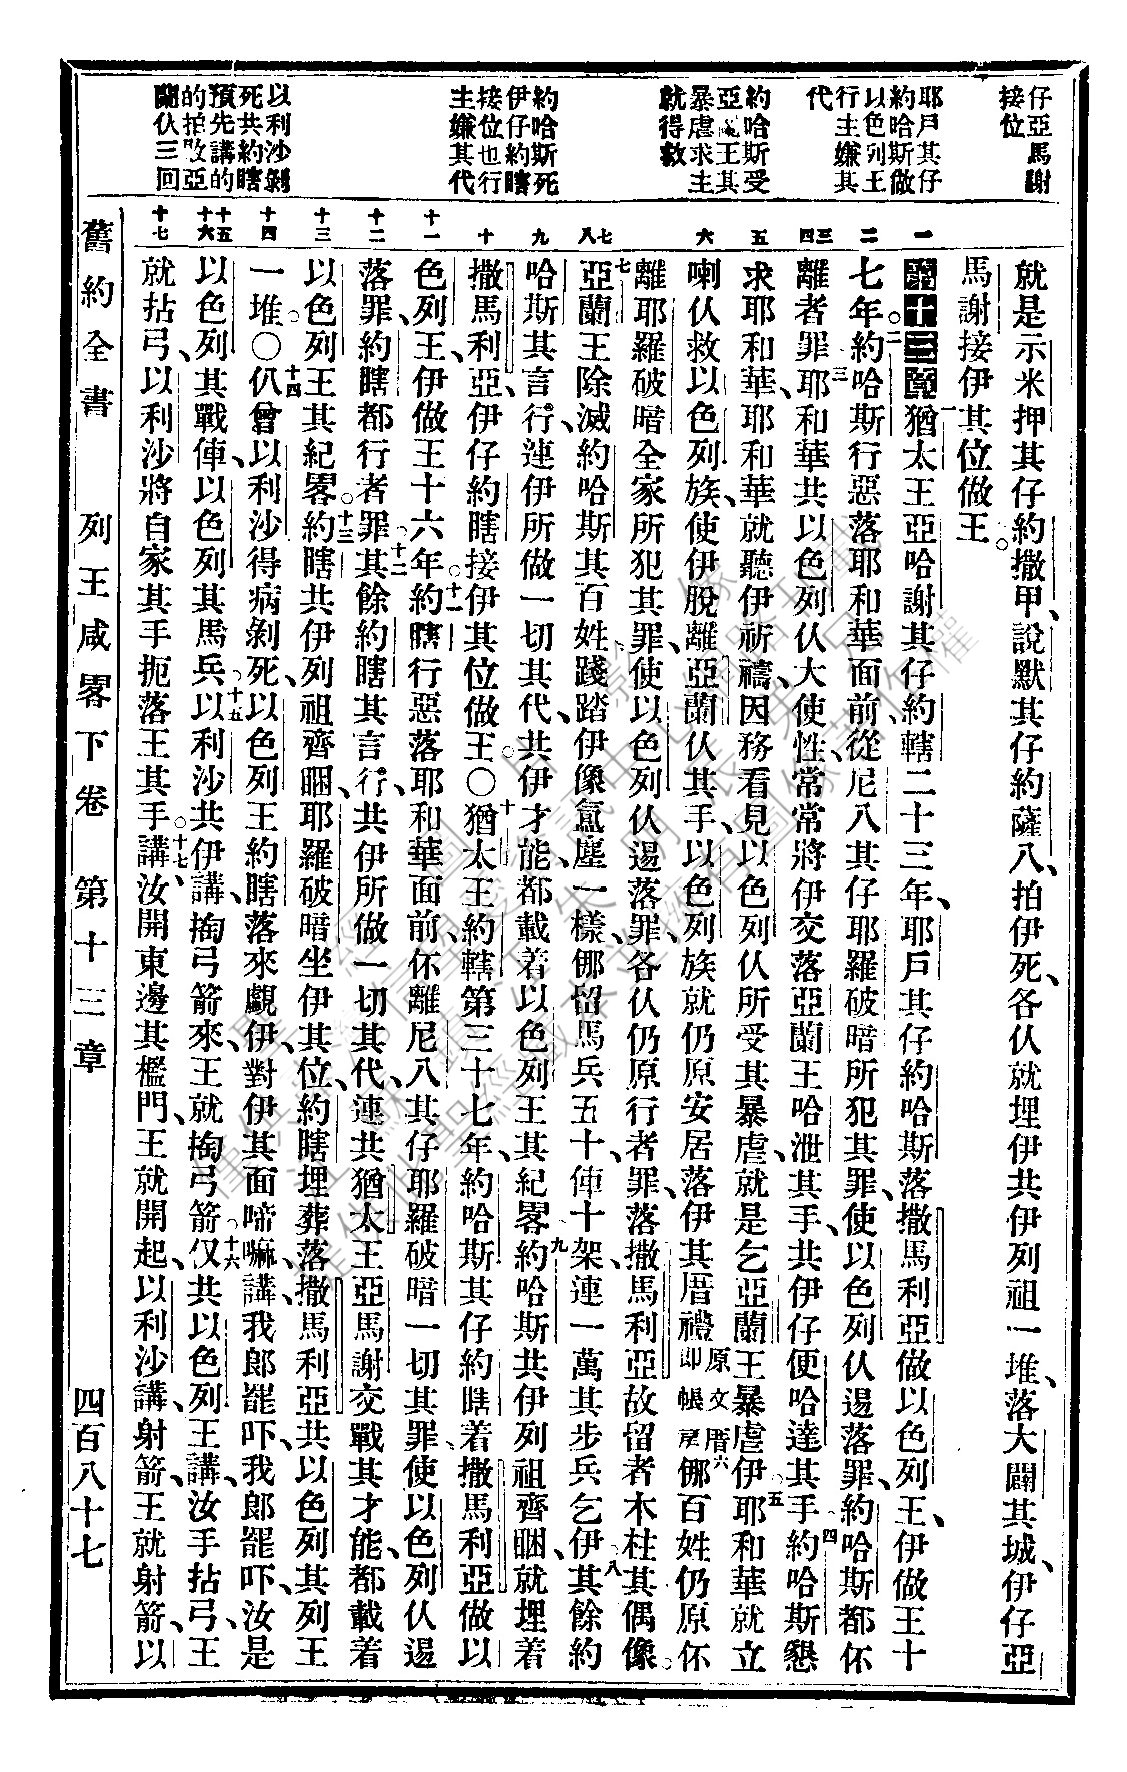 仔亞馬謝
接位
耶戶其仔
約哈斯做
以色列王
行主嫌其
代
約哈斯受
亞王其
暴虐求主
就得救
約哈斯死
伊仔約瞎
接位也行
主嫌其代
以利沙剝
死共約瞎
預先講的
的拍敗亞
蘭仈三回
一
二
三四
五
六
七八
九
十
十一
十二
十三
十四
十五十六
十七
就是示米押其仔約撒甲、說默其仔約薩八、拍伊死、各仈就埋伊共伊列祖一堆、落大闢其城、伊仔亞
馬謝接伊其位做王。
第十三章一猶太王亞哈謝其仔約轄二十三年、耶戶其仔約哈斯落撒馬利亞做以色列王、伊做王十
七年。二約哈斯行惡落耶和華面前、從尼八其仔耶羅破暗所犯其罪、使以色列仈逿落罪、約哈斯都伓
離者罪、三耶和華共以色列仈大使性、常常將伊交落亞蘭王哈泄其手、共伊仔便哈達其手。四約哈斯懇
求耶和華、耶和華就聽伊祈禱、因務看見以色列仈所受其暴虐、就是乞亞蘭王暴虐伊。五耶和華就立
喇仈救以色列族、使伊脫離亞蘭仈其手、以色列族就仍原安居落伊其厝禮原文厝即帳房六㑚百姓仍原伓
離耶羅破暗全家所犯其罪、使以色列仈逿落罪、各仈仍原行者罪、落撒馬利亞故留者木柱其偶像。
七亞蘭王除滅約哈斯其百姓、踐踏伊像氳塵一樣、㑚留馬兵五十、俥十架、連一萬其步兵乞伊。八其餘約
哈斯其言行、連伊所做一切其代、共伊才能、都載着以色列王其紀畧。九約哈斯共伊列祖齊睏、就埋着
撒馬利亞、伊仔約瞎接伊其位做王。〇十猶太王約轄第三十七年、約哈斯其仔約瞎着撒馬利亞做以
色列王、伊做王十六年。十一約瞎行惡落耶和華面前、伓離尼八其仔耶羅破暗一切其罪、使以色列仈逿
落罪、約瞎都行者罪。十二其餘約瞎其言行、共伊所做一切其代、連共猶太王亞馬謝交戰其才能、都載着
以色列王其紀畧。十三約瞎共伊列祖齊睏、耶羅破暗坐伊其位、約瞎埋葬落撒馬利亞、共以色列其列王
一堆。〇十四仈曾以利沙得病剝死、以色列王約瞎落來覷伊、對伊其面啼嘛、講、我郎罷吓、我郎罷吓、汝是
以色列其戰俥、以色列其馬兵。十五以利沙共伊講、掏弓箭來、王就掏弓箭。十六仅共以色列王講、汝手拈弓、王
就拈弓、以利沙將自家其手扼落王其手。十七講、汝開東邊其檻門、王就開起、以利沙講、射箭、王就射箭、以
舊約全書　列王咸畧下卷　第十三章　四百八十七